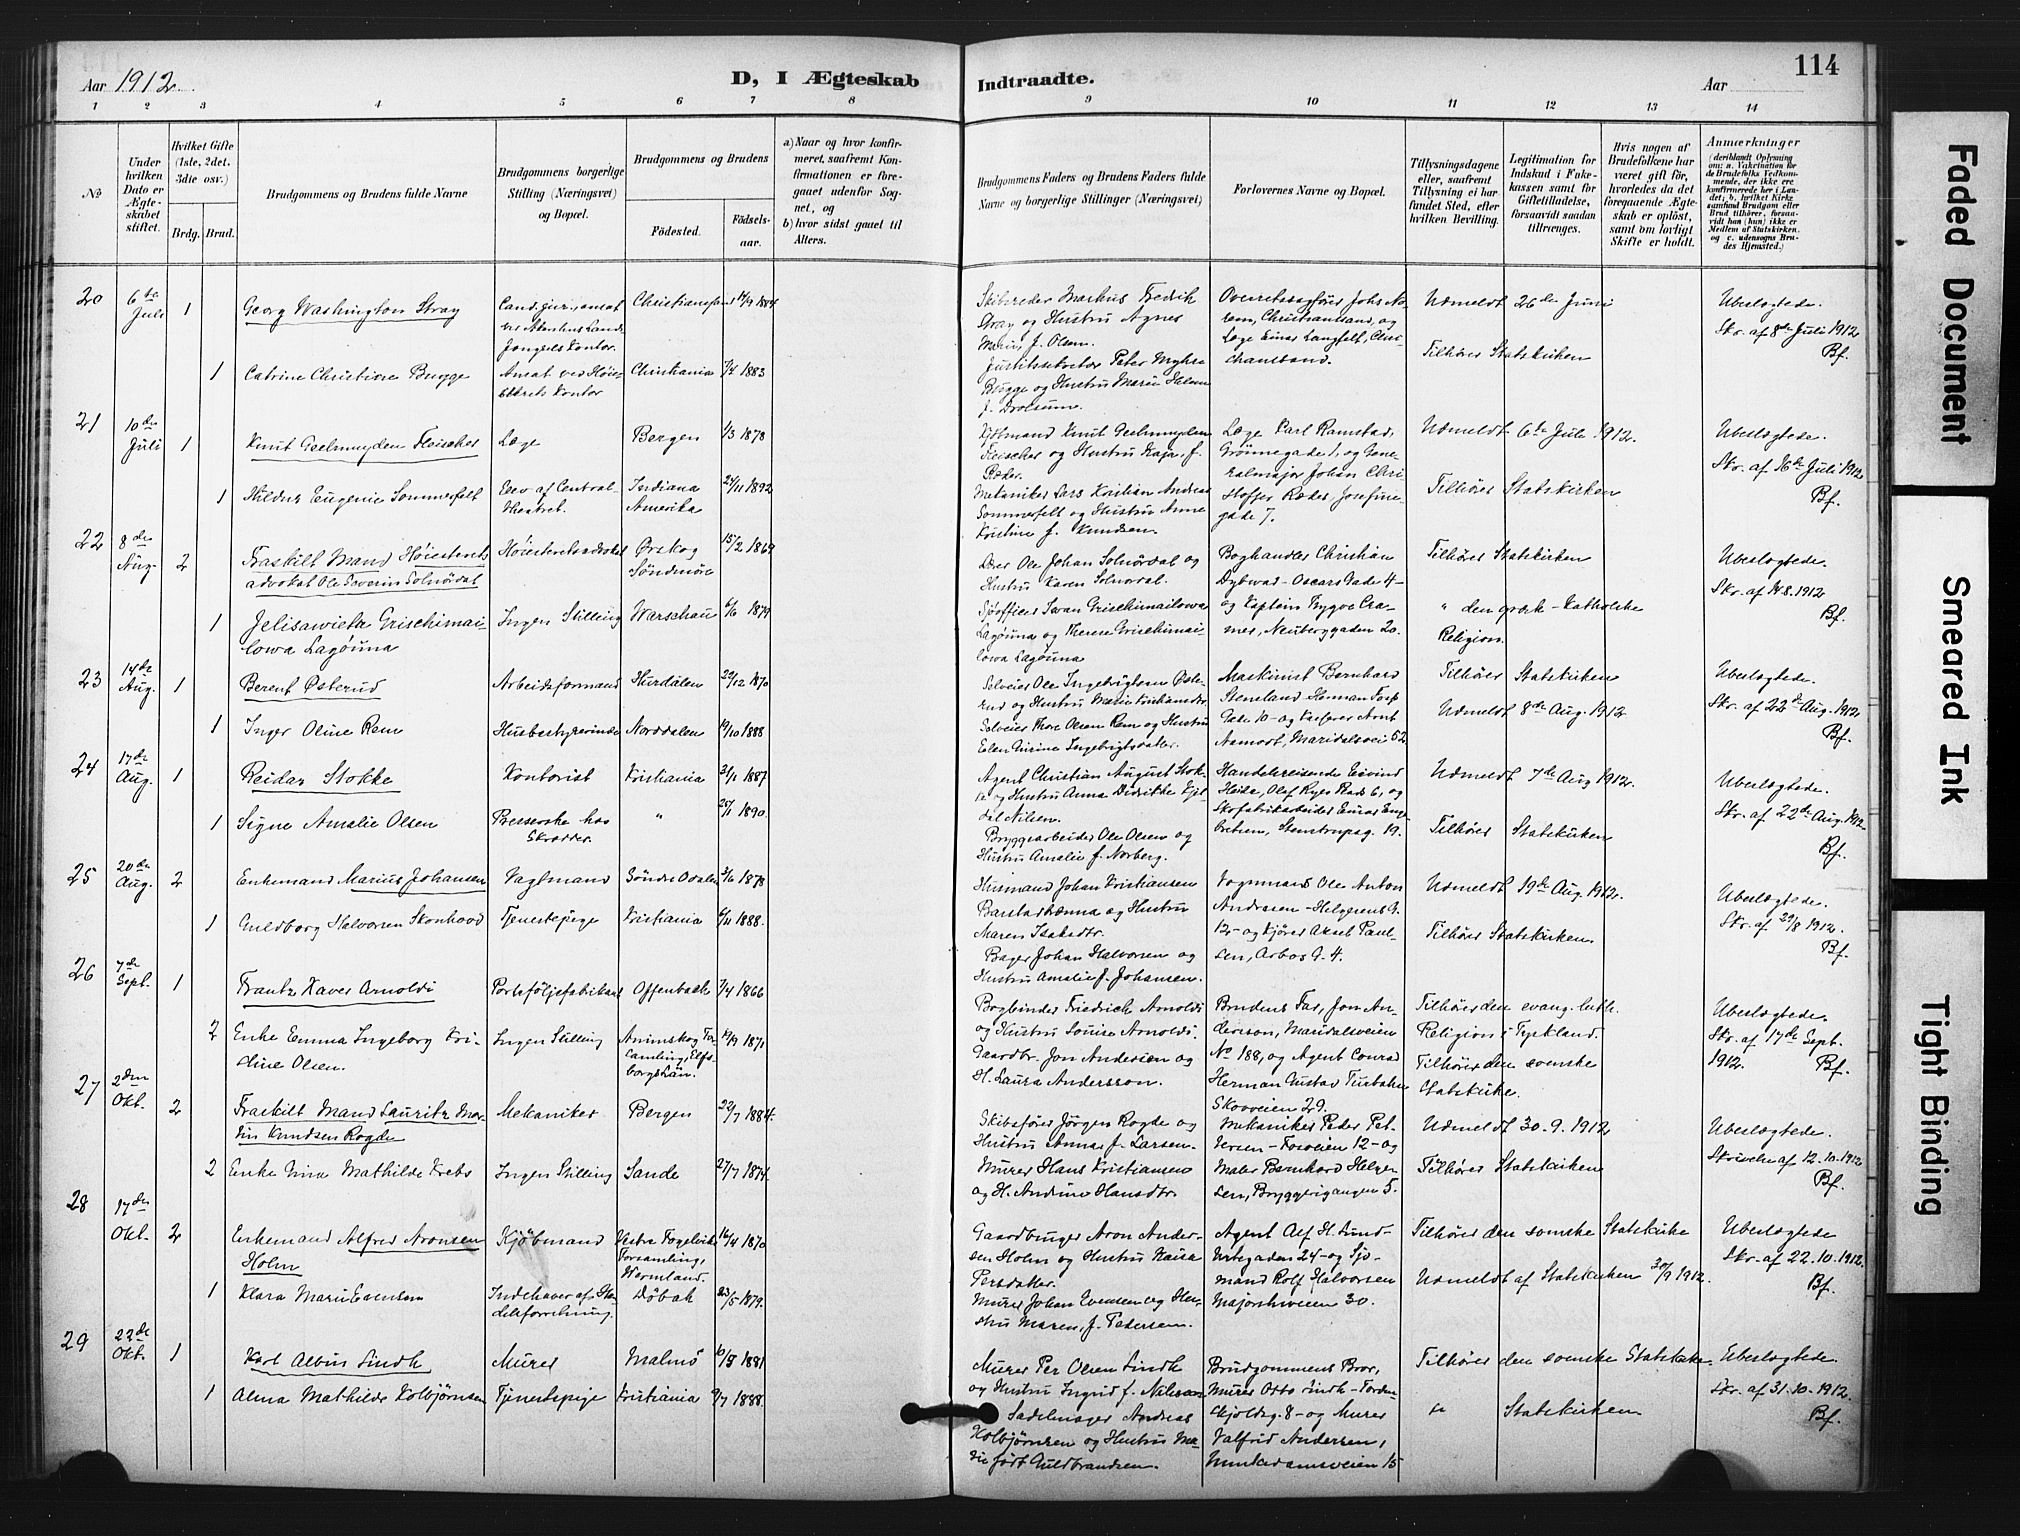 Aar 1912
D, I Ægteskab
Indtraadte.
Aar
114
1 2 3 4 5 6 7 8 9 10 11 12 13 14
No
Under hvilken Dato er Ægteskabet stiftet.
Hvilket Gifte (1ste, 2det, 3die osv.)
Brdg. Brud.
Brudgommens og Brudens fulde Navne
Brudgommens borgerlige Stilling (Næringsvei) og Bopæl.
Brudgommens og Brudens
Fødested.
Fødsels-aar.
a) Naar og hvor konfirmeret, saafremt Konfirmationen er foregaaet udenfor Sognet, og
b) hvor sidst gaaet til Alters.
Brudgommens Faders og Brudens Faders fulde Navne og borgerlige Stillinger (Næringsvei)
Forlovernes Navne og Bopæl.
Tillysningsdagene eller, saafremt Tillysning ei har fundet Sted, efter hvilken Bevilling.
Legitimation for Indskud i Fakekassen samt for Giftetilladelse, forsaavidt saadan tiltrænges.
Hvis nogen af Brudefolkene har været gift før, hvorledes da det foregaaende Ægteskab er opløst, samt om lovligt Skifte er holdt.
Anmærkninger
20
6te Juli
1
Georg Washington Stray
Christianssand
Skibsreder Markus Fredrik
Stray og Hustru Agnes
Marie, f. Olsen.
Udmeldt 26de Juni
Ubeslægtede.
Skr. af 8de Juli 1912
Bf.
1
Catrine Christiane Bugge
Ansat ved Høiesterets Kontor
Christiania
7/4 1883
Justitssekretær Peter Myhre
Bugge og Hustru Marie Helene
Tilhører Statskirken
21
10de Juli
1
Knut Geelmuyden Fleischer
Læge
Bergen
1/3 1878
Kjøbmand Knut Geelmuyden
Fleischer og Hustru Kaja, f.
Læge Karl Ramstad,
Grønnegade 1, og Generalmajor Johan Christoffer Ræder Josefinegade 7.
Udmeldt 6te Juli 1912.
Ubeslægtede.
Skr. af 16de Juli 1912
Bf.
1
Hildur Eugenie Sommerfelt
Elev af Centraltheatret.
Indiana Amerika
24/11 1892
Mekaniker Lars Kristian Andreas
Sommerfelt og Hustru Anne
Kristine f. Knudsen.
Tilhører Statskirken
22
8de Aug.
2
Fraskilt Mand Høiesterets
advokat Ole Severin Solnørdal
Høiesteretsadvokat
Ørskog Søndmøre
15/2 1869
Lærer Ole Johan Solnørdal og
Hustru Karen Solnørdal.
Boghandler Christian
Dybwad - Oscars Gade 4 -
og Kaptein Trygve Cramer, Neuberggaden 20.
Tilhører Statskirken
Ubeslægtede.
Skr. af 14.8.1912
Bf.
1
Jelisawieta Grischimailowa Lagóuna
Ingen Stilling
Warschau
6/6 1879
Sjøofficer Iwan Grischimailowa
Lagóuna og Therese Grischimailowa Lagóuna
" den græk-Katholske
Religion.
23
14de Aug.
1
Berent Østerud
Arbeidsformand
Hurdalen
29/12 1870
Selveier Ole Ingebrigtsen Østerud og Hustru Marie Kristiansdtr.
Maskinist Bernhard
Steneland Herman Foss
Gade 10 - og Kasserer Arnt
Aamodt, Maridalsvei 52
Tilhører Statskirken
Ubeslægtede.
Skr. af 22de Aug. 1912
Bf.
1
Inger Oline Rem
Husbestyrerinde
Norddalen
19/10 1888
Selveier Thore Olsen Rem og Hustru
Elen Gurine Ingebrigtsdatter.
Udmeldt 8de Aug. 1912
24
17de Aug.
1
Reidar Stokke
Kontorist
Kristiania
31/1 1887
Agent Christian August Stokke og Hustru Anna Didrikke Kjeldsl Nilsen.
Handelsreisende Eivind
Heide, Olaf Ryes Plads 6, og
Skofabrikarbeider Einar Engebretsen, Stenstrupsg. 19.
Udmeldt 7de Aug 1912.
Ubeslægtede.
Skr. af 22de Aug. 1912
Bf.
1
Signe Amalie Olsen
Presserske hos Skrædder.
"
25/1 1890.
Bryggearbeider Ole Olsen og
Hustru Amalie f. Norberg.
Tilhører Statskirken
25
20de Aug.
2
Enkemand Marius Johansen
Vagtmand
Søndre Odalen
3/6 1878
Husmand Johan Kristiansen
Barstadkænna og Hustru
Maren Isaksdtr.
Vognmand Ole Anton
Andresen - Helgesens G.
12 - og Kjører Aksel Paulsen, Arbos G. 4.
Udmeldt 19de Aug. 1912.
Ubeslægtede.
Skr. af 29/8 1912.
Bf.
1
Guldborg Halvorsen Skonhovd
Tjenestepige
Kristiania
6/11 1888.
Bager Johan Halvorsen og
Hustru Amalie f. Johansen.
Tilhører Statskirken.
26
7de Sept.
1
Frantz Xaver Arnoldi
Porteføljefabrikant
Offenbach
7/4 1866
Bogbinder Friedrich Arnoldi
og Hustru Louise Arnoldi.
Brudens Far, Jon Andersson, Maridalsveien
No 188, og Agent Conrad
Herman Gustav Turbahn
Skovveien 29.
Tilhører den evang. luth.
Religion i Tyskland.
Ubeslægtede.
Skr. af 17de Sept.
1912.
Bf.
2
Enke Emma Ingeborg Kristine Olsen.
Ingen Stilling
Animskog Forsamling, Elfsborgs Län.
19/9 1871
Gaardbr. Jon Andersen og
H. Laura Andersson.
Tilhører den svenske
Statskirke.
27
2den Okt.
2
Fraskilt Mand Lauritz Martin Knudsen Rogde
Mekaniker
Bergen
22/7 1884.
Skibsfører Jørgen Rogde og
Hustru Anna f. Larsen.
Mekaniker Peder Petersen - Fosveien 12 - og
Maler Bernhard Helgesen, Bryggerigangen 5.
Udmeldt 30.9.1912
Ubeslægtede.
Skrivelse af 12.10.1912
Bf.
2
Enke Nina Mathilde Krebs
Ingen Stilling
Sande
27/7 1874.
Murer Hans Kristiansen
og H. Andrine Hansdtr.
Tilhører Statskirken
28
17de Okt.
2
Enkemand Alfred Aronsen
Holm
Kjøbmand
Vestra Fogelvik Forsamling, Wermland.
16/4 1870
Gaardbruger Aron Andersen Holm og Hustru Kaisa
Persdatter.
Agent Alf H. Lund -
Urtegaden 24 - og Sjømand Rolf Halvorsen
Majorstuveien 30.
Tilhører den svenske Statskirke
Ubeslægtede
Skr. af 22.10.1912.
Bf.
1
Klara Marie Evensen
Indehaver af Handelsforretning.
Drøbak
23/5 1879.
Murer Johan Evensen og Hustru Maren, f. Pedersen.
Udmeldt af Statskirken 30/9 1912.
29
22de Okt.
1
Karl Albin Lindh
Murer
Malmö
10/5 1881
Murer Per Olsen Lindh
og Hustru Ingrid f. Nilsson
Brudgommens Bror,
Murer Otto Lindh - Tordenskjoldsg. 8 - og Murer
Valfrid Andersen,
Munkedamsveien 15
Tilhører den svenske Statskirke.
Ubeslægtede.
Skr. af 31.10.1912.
Bf.
1
Alma Mathilde Kolbjørnsen
Tjenestepige
Kristiania
9/7 1888.
Sadelmager Andreas
Kolbjørnsen og Hustru Marie født Guldbrandsen.
" Statskirken
Faded Document
Smeared Ink
Tight Binding